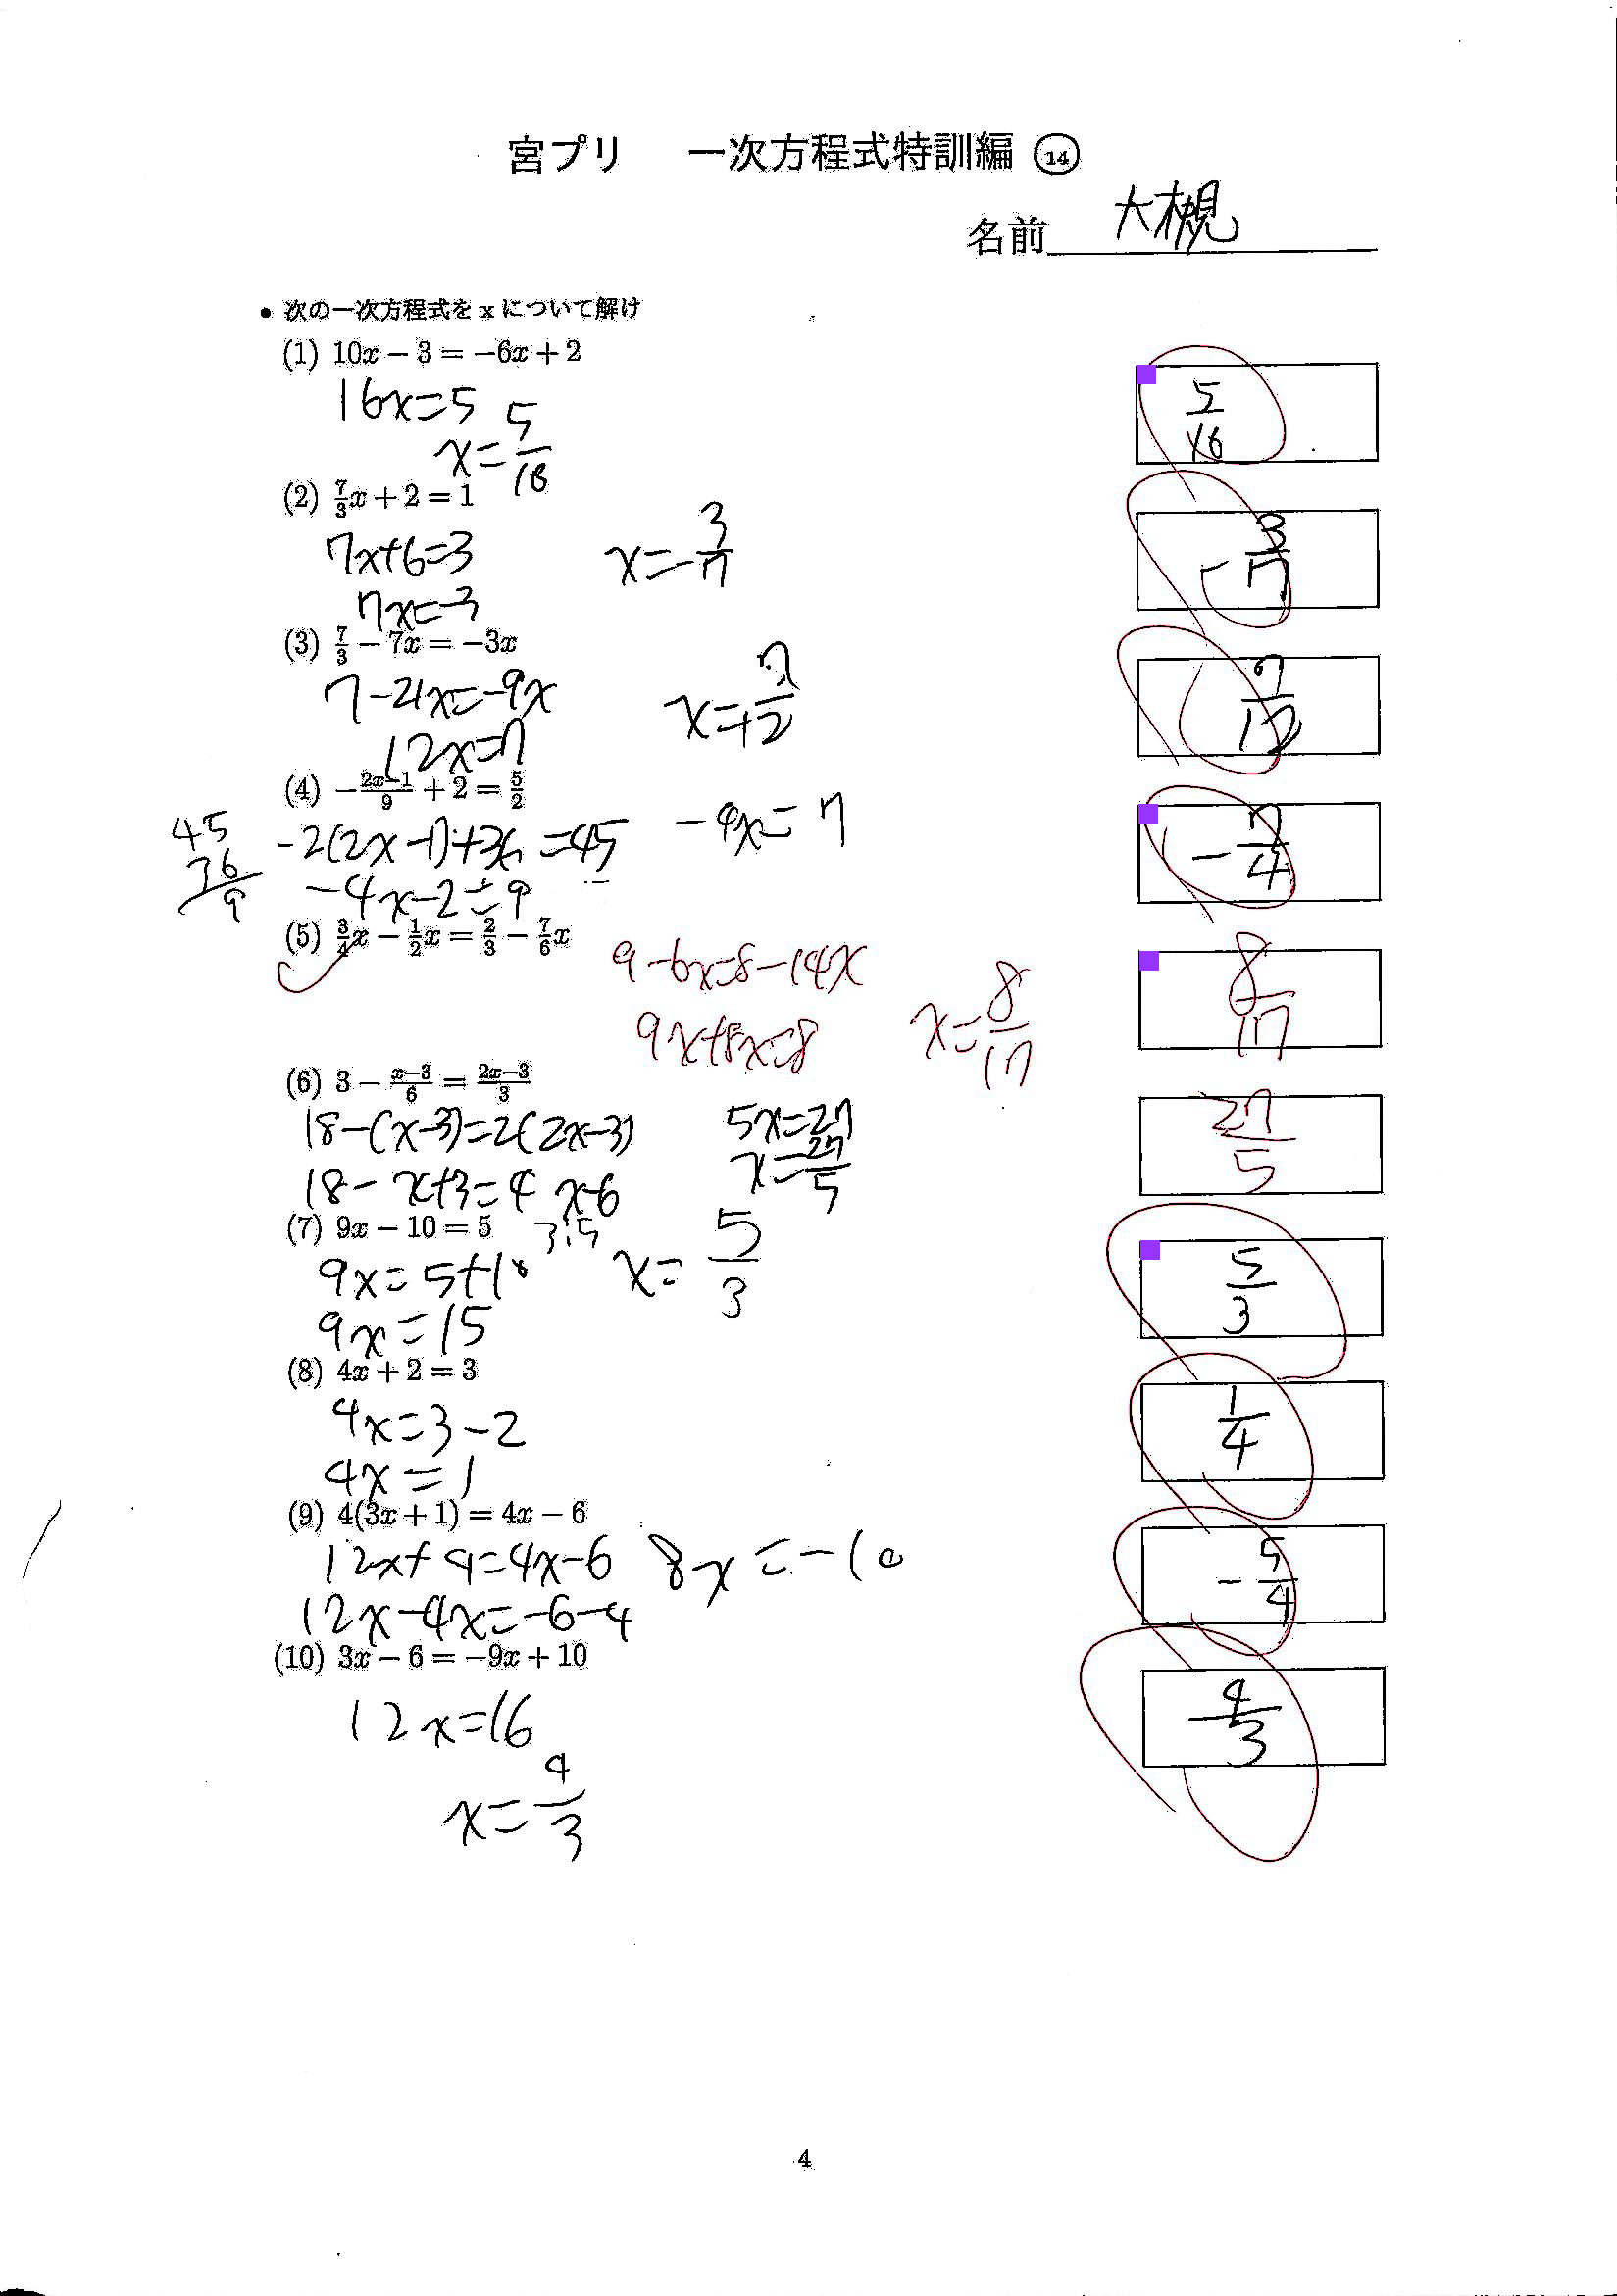 宮プリ 一次方程式特訓編 ⑭
名前 大槻
● 次の一次方程式を x について解け
(1) 10x − 3 = −6x + 2
16x=5
x=5/16
5/16
(2) 7/3x + 2 = 1
7x+6=3
7x=-3
x=-3/7
-3/7
(3) 7/3 − 7x = −3x
7-21x=-9x
12x=7
7/12
(4) −(2x−1)/9 + 2 = 5/2
45
36
9
-2(2x-1)+36=45
-4x-2=9
-4x=7
-7/4
(5) 3/4x − 1/2x = 2/3 − 7/6x
9-6x=8-14x
9x+8x=8
x=8/17
8/17
(6) 3 − (x−3)/6 = (2x−3)/3
18-(x-3)=2(2x-3)
18-x+3=4x-6
5x=27
x=27/5
27/5
(7) 9x − 10 = 5
9x=5+10
9x=15
x=5/3
5/3
(8) 4x + 2 = 3
4x=3-2
4x=1
1/4
(9) 4(3x + 1) = 4x − 6
12x+4=4x-6
12x-4x=-6-4
8x=-10
-5/4
(10) 3x − 6 = −9x + 10
12x=16
x=4/3
4/3
4